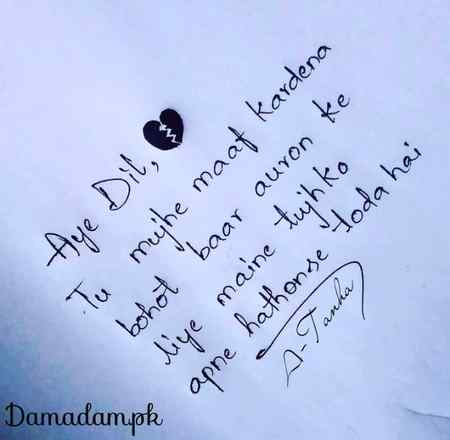 Aye Dil,
Tu mujhe maaf kardena
bohot baar auron ke
liye maine tujhko
apne hathonse toda hai
A-Tanha
Damadam.pk